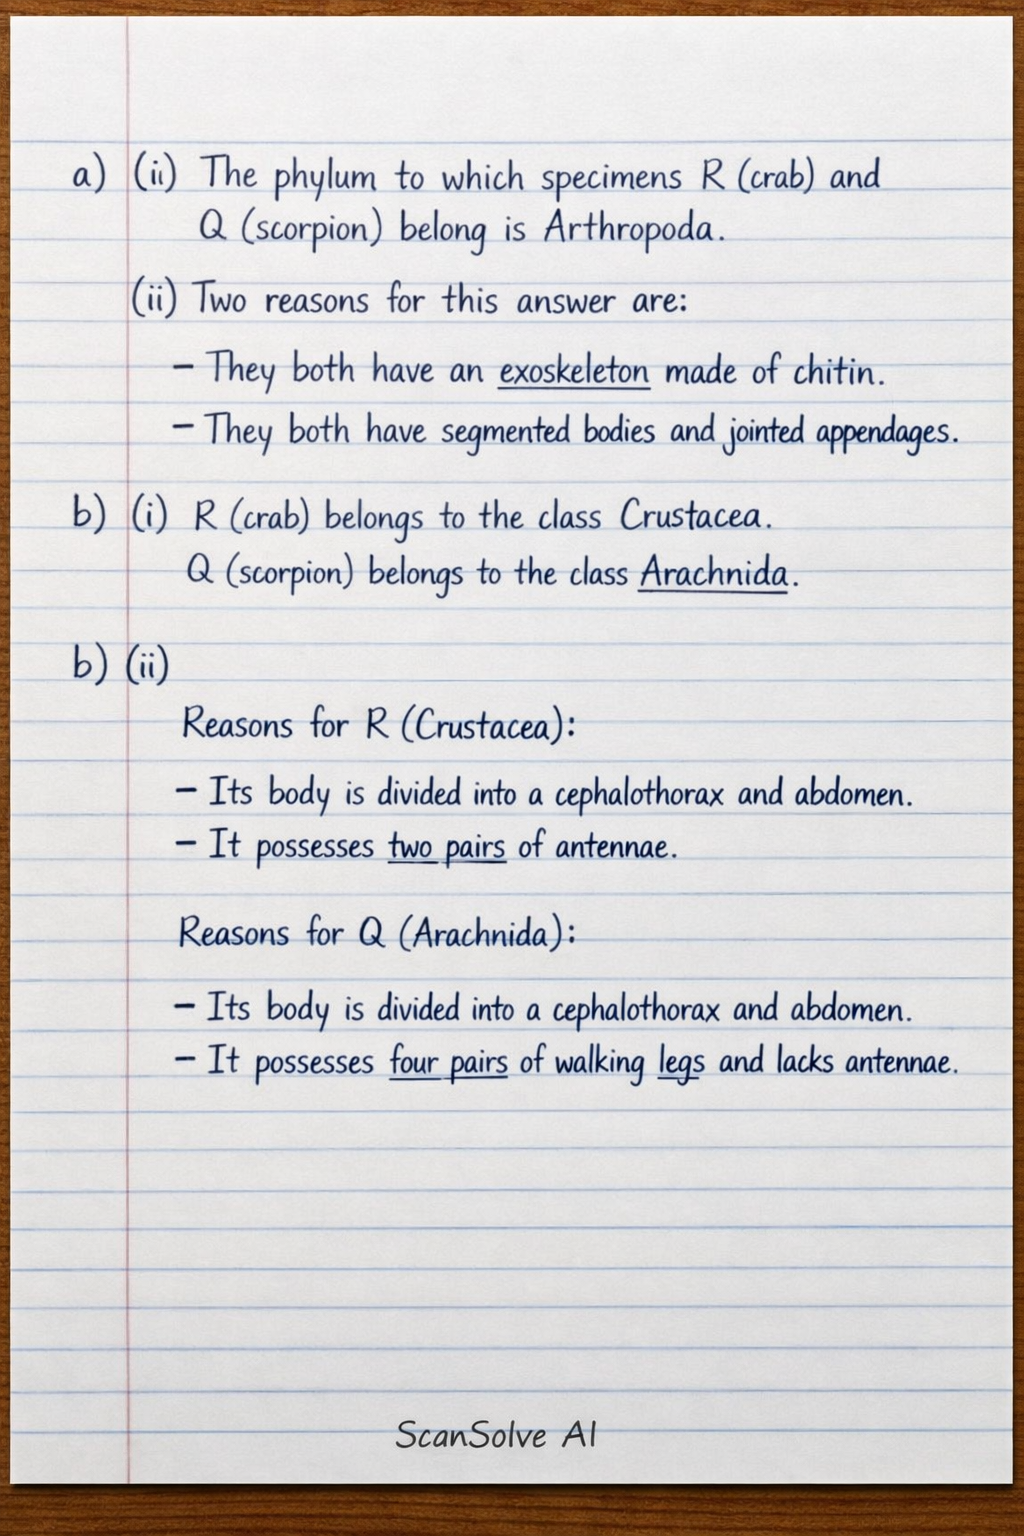 a) (ii) The phylum to which specimens R (crab) and
Q (scorpion) belong is Arthropoda.
(ii) Two reasons for this answer are:
– They both have an exoskeleton made of chitin.
– They both have segmented bodies and jointed appendages.
b) (i) R (crab) belongs to the class Crustacea.
Q (scorpion) belongs to the class Arachnida.
b) (ii)
Reasons for R (Crustacea):
– Its body is divided into a cephalothorax and abdomen.
– It possesses two pairs of antennae.
Reasons for Q (Arachnida):
– Its body is divided into a cephalothorax and abdomen.
– It possesses four pairs of walking legs and lacks antennae.
ScanSolve AI